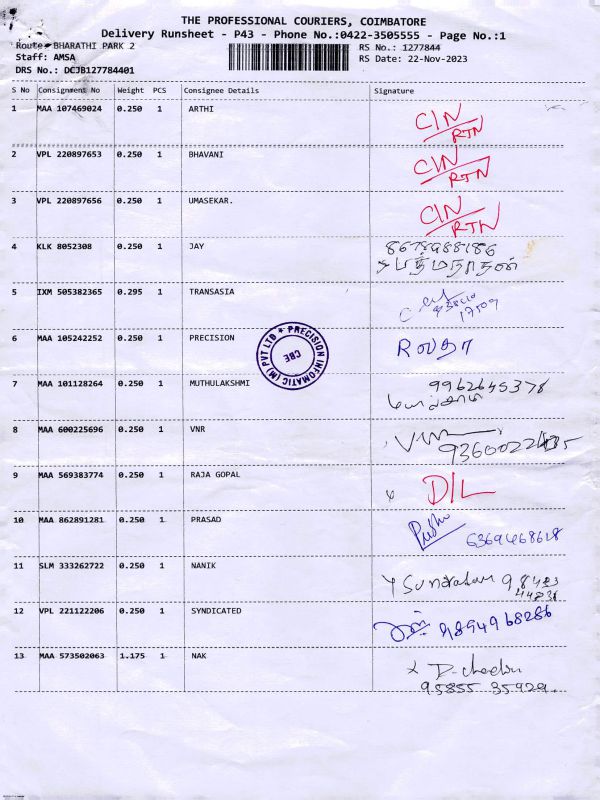 THE PROFESSIONAL COURIERS, COIMBATORE
Delivery Runsheet - P43 - Phone No.:0422-3505555 - Page No.:1
Route: BHARATHI PARK 2 RS No.: 1277844
Staff: AMSA RS Date: 22-Nov-2023
DRS No.: DCJB127784401
S No Consignment No Weight PCS Consignee Details Signature
1 MAA 107469024 0.250 1 ARTHI CIN
RTN
2 VPL 220897653 0.250 1 BHAVANI CIN
RTN
3 VPL 220897656 0.250 1 UMASEKAR. CIN
RTN
4 KLK 8052308 0.250 1 JAY
பத்மநாதன்
5 IXM 505382365 0.295 1 TRANSASIA
17509
6 MAA 105242252 0.250 1 PRECISION
PRECISION INFOMATIC (M) PVT LTD
CBE
7 MAA 101128264 0.250 1 MUTHULAKSHMI 9962645378
8 MAA 600225696 0.250 1 VNR
9 MAA 569383774 0.250 1 RAJA GOPAL D/L
10 MAA 862891281 0.250 1 PRASAD
6369468618
11 SLM 333262722 0.250 1 NANIK
12 VPL 221122206 0.250 1 SYNDICATED 9894968286
13 MAA 573502063 1.175 1 NAK
95855 35929